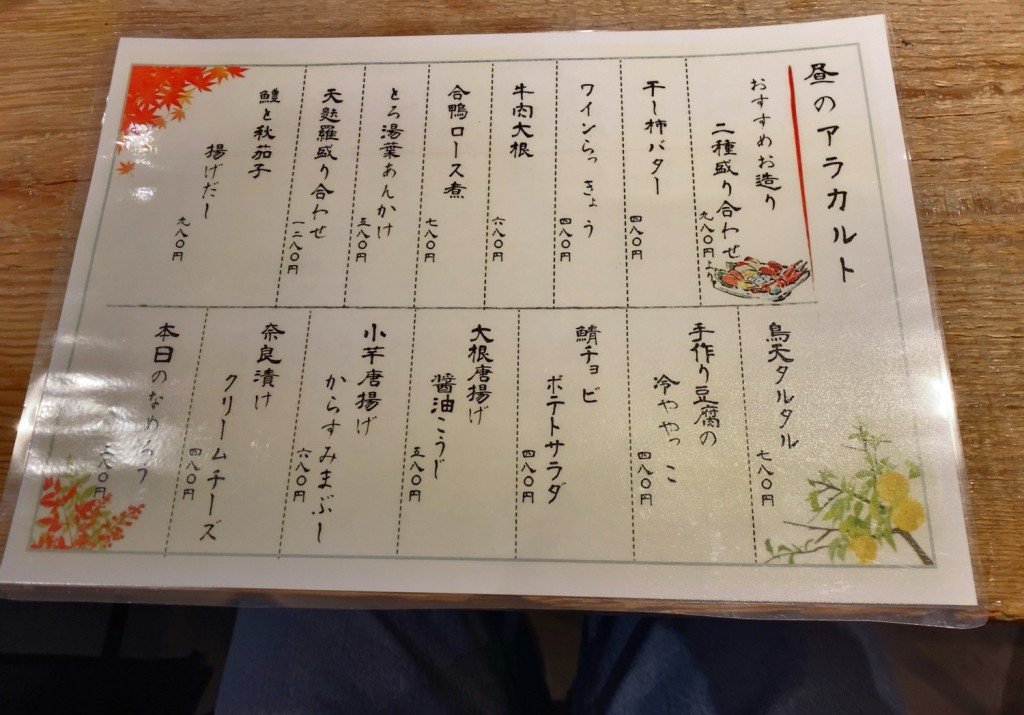 昼のアラカルト
おすすめお造り
二種盛り合わせ
九八〇円より
干し柿バター
四八〇円
ワインらっきょう
四八〇円
牛肉大根
六八〇円
合鴨ロース煮
七八〇円
とろ湯葉あんかけ
五八〇円
天麩羅盛り合わせ
一二八〇円
鱧と秋茄子
揚げだし
九八〇円
鳥天タルタル
七八〇円
手作り豆腐の
冷ややっこ
四八〇円
鯖チョビ
ポテトサラダ
四八〇円
大根唐揚げ
醤油こうじ
五八〇円
小芋唐揚げ
からすみまぶし
六八〇円
奈良漬け
クリームチーズ
四八〇円
本日のなめろう
八〇円